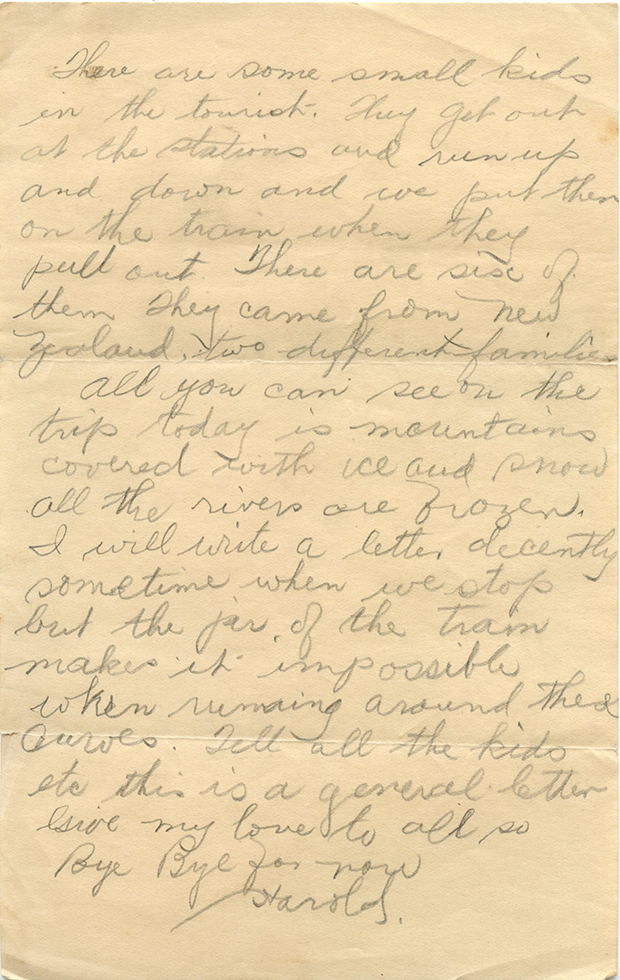 There are some small kids
in the tourist. They get out
at the stations and run up
and down and we put them
on the train when they
pull out. There are six of
them They came from New
Zealand, two different families
All you can see on the
trip today is mountains
covered with ice and snow
all the rivers are frozen.
I will write a letter decently
sometime when we stop
but the jar of the train
makes it impossible
when running around these
curves. Tell all the kids
etc this is a general letter
Give my love to all so
Bye Bye for now
Harold.